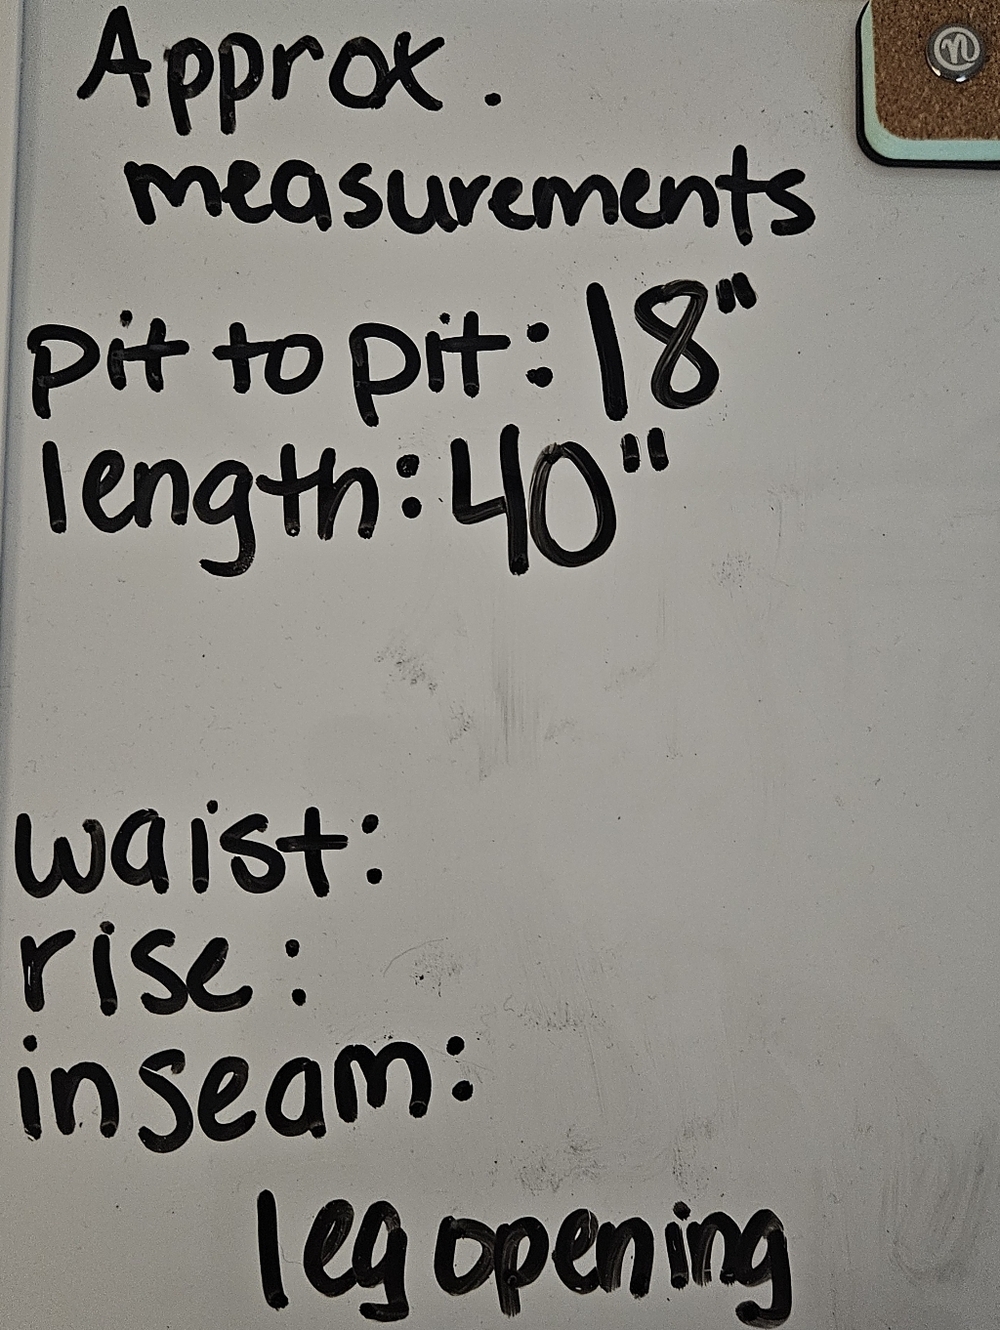 Approx.
measurements
pit to pit: 18"
length: 40"
waist:
rise:
inseam:
leg opening